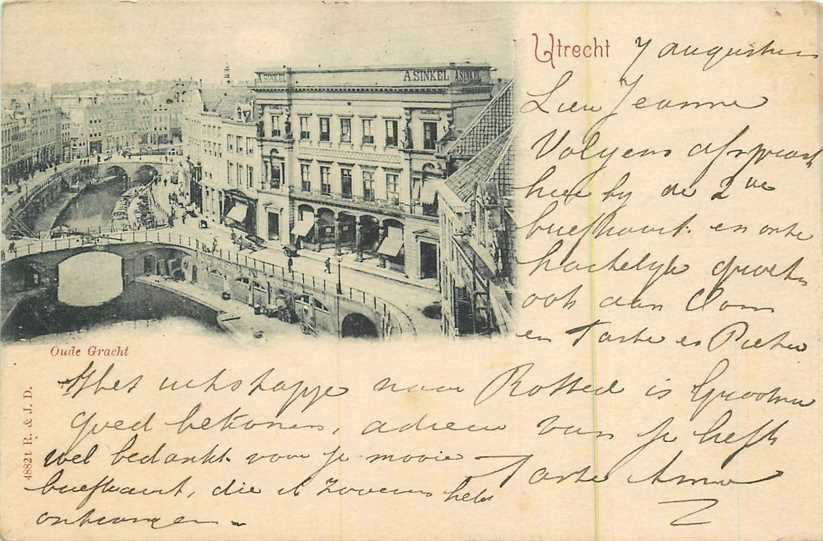 A. SINKEL
Utrecht 7 augustus
Lieve Jeanne
Volgens afspraak
hier by de 2de
briefkaart en onze
hartelijke groeten
ook aan Oom
en Tante en Pieter
Het uitstapje naar Rotterd is Grootma
goed bekomen, adieu van je liefh
Tante Anna
wel bedankt voor je mooie
briefkaart, die ik zooeven heb
ontvangen.
Oude Gracht
48821 R. & J. D.